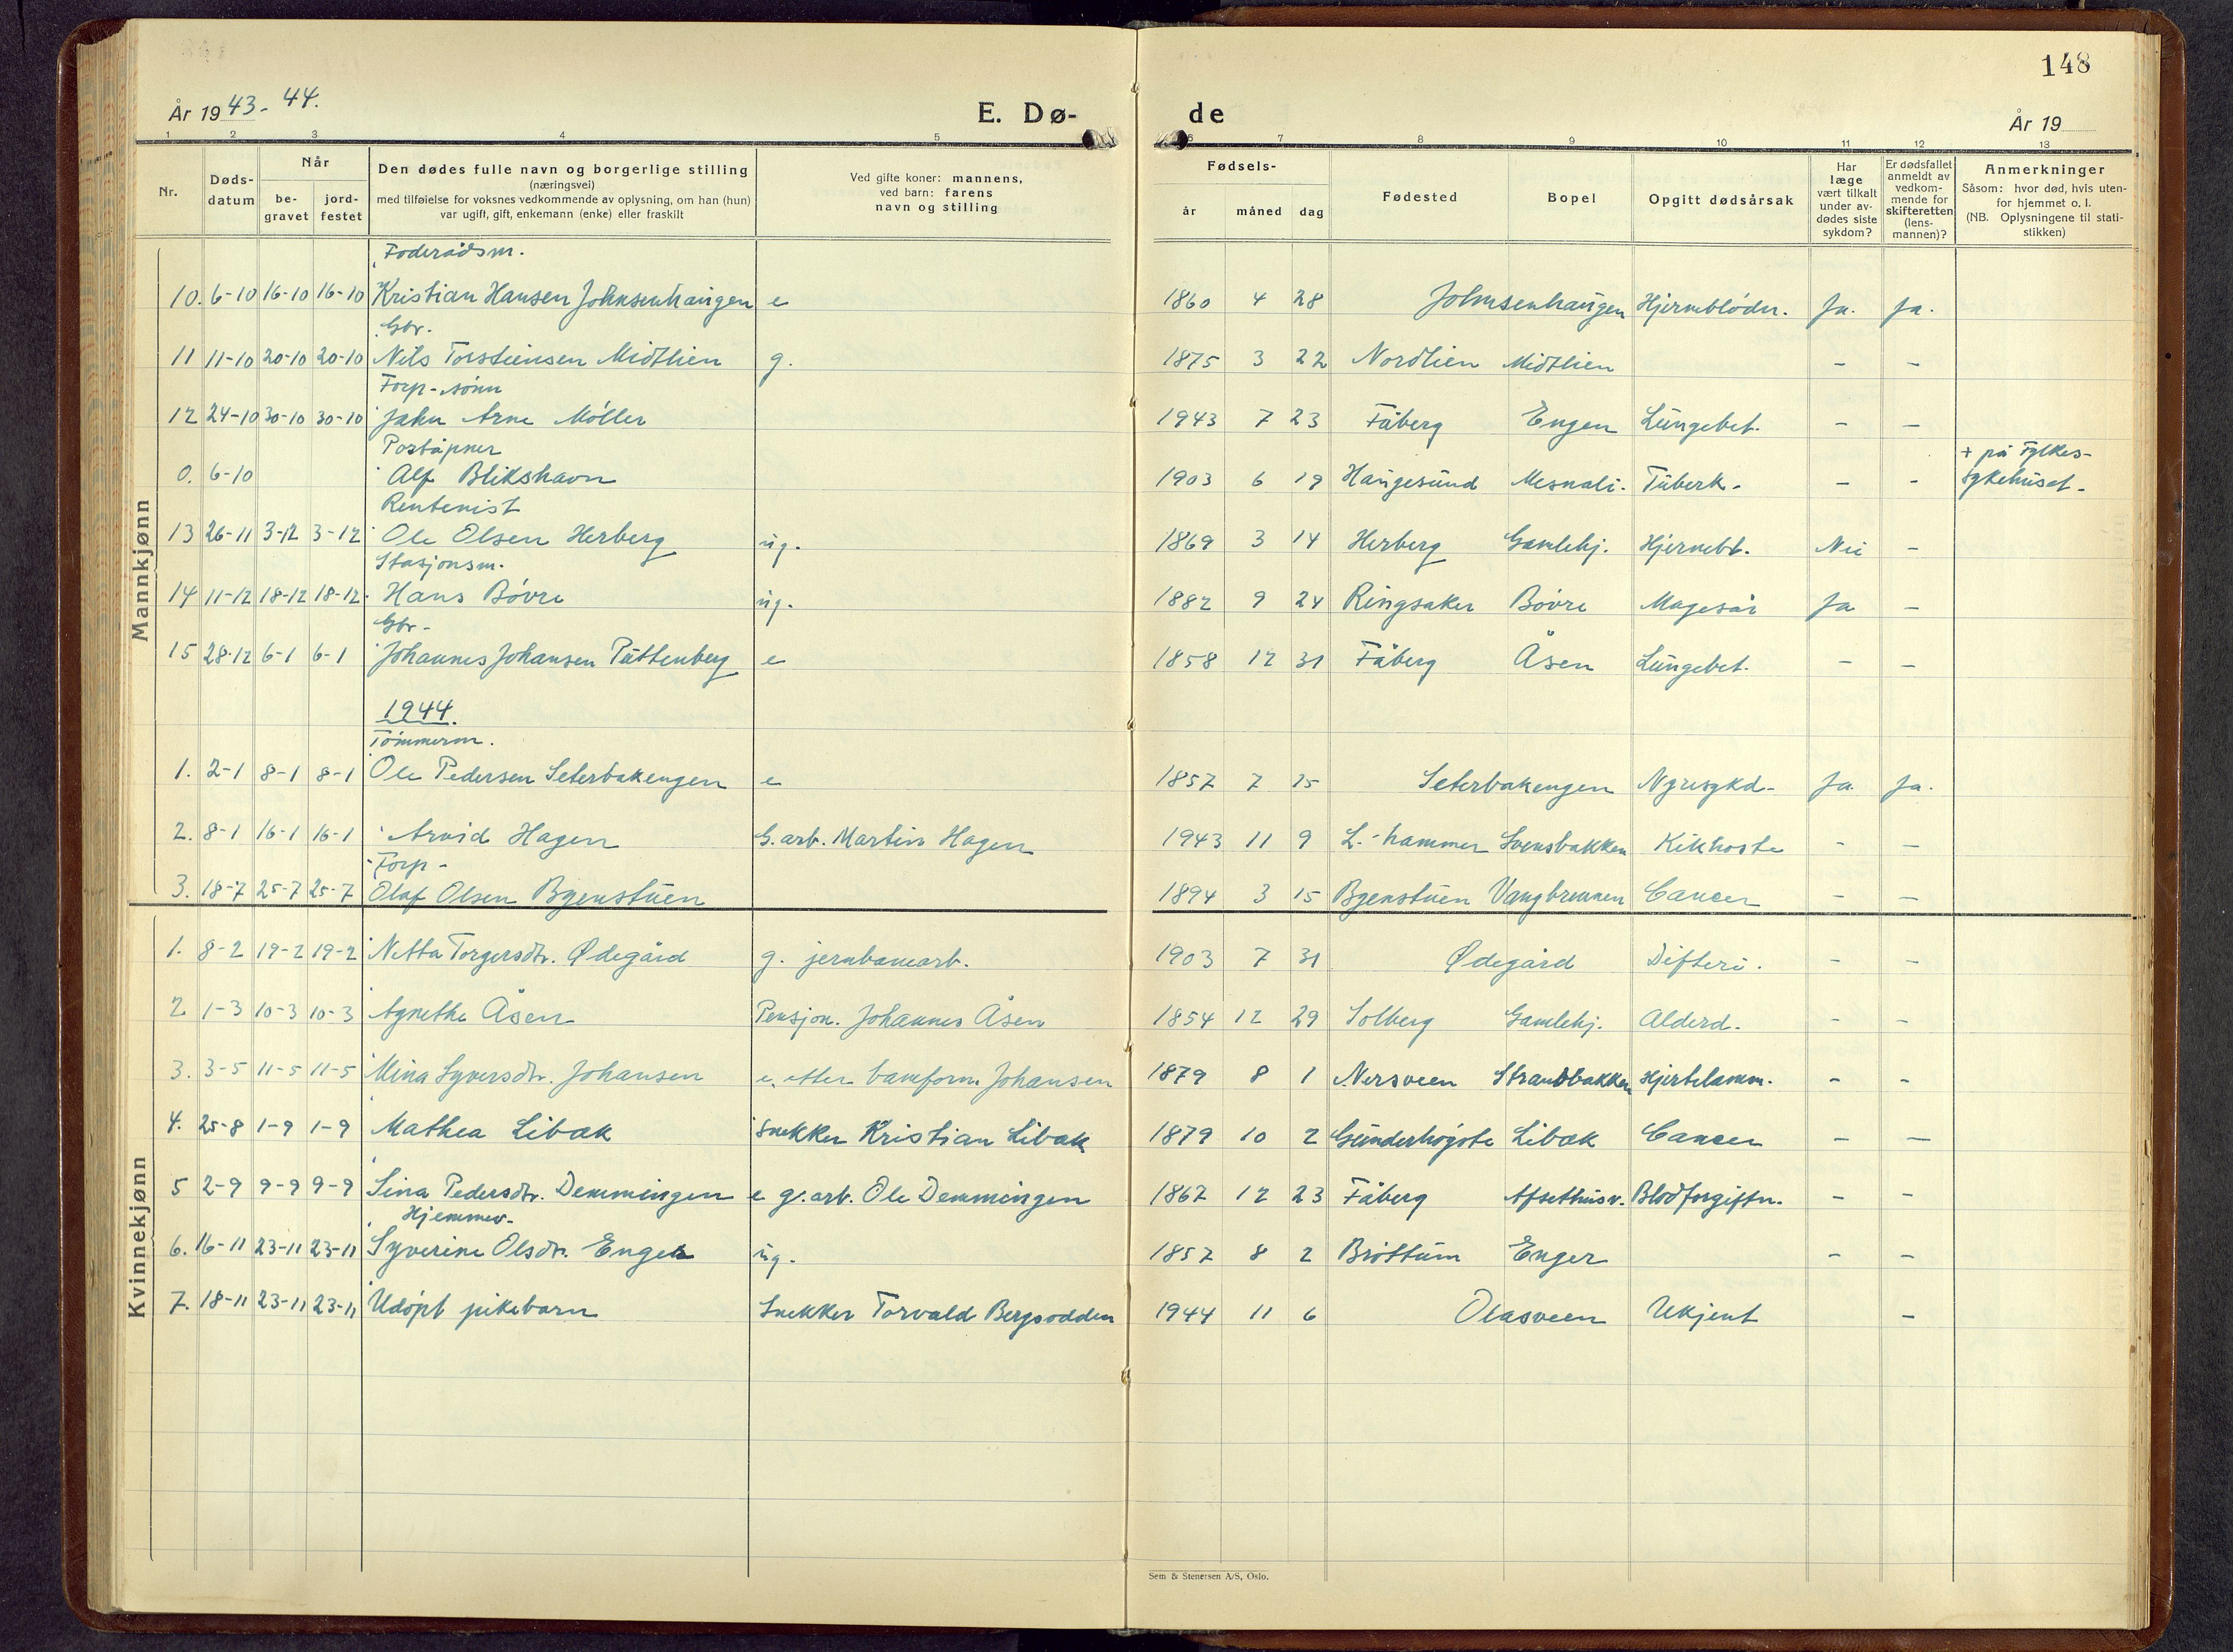 148
År 1943-44.
E. Dø-
de
År 19
1 2 3 4 5 6 7 8 9 10 11 12 13
Nr.
Døds-
datum
Når
be-
gravet
jord-
festet
Den dødes fulle navn og borgerlige stilling
(næringsvei)
med tilføielse for voksnes vedkommende av oplysning, om han (hun)
var ugift, gift, enkemann (enke) eller fraskilt
Ved gifte koner: mannens,
ved barn: farens
navn og stilling
Fødsels-
år måned dag
Fødested
Bopel
Opgitt dødsårsak
Har
læge
vært tilkalt
under av-
dødes siste
sykdom?
Er dødsfallet
anmeldt av
vedkom-
mende for
skifteretten
(lens-
mannen)?
Anmerkninger
Såsom: hvor død, hvis uten-
for hjemmet o. l.
(NB. Oplysningene til stati-
stikken)
Mannkjønn
Foderådsm.
10. 6-10 16-10 16-10 Kristian Hansen Johnsenhaugen e 1860 4 28 Johnsenhaugen Hjerneblødn. Ja. Ja.
Gbr.
11 11-10 20-10 20-10 Nils Torsteinsen Midtlien g. 1875 3 22 Nordlien Midtlien - -
Forp-sønn
12 24-10 30-10 30-10 Jahn Arne Møller 1943 7 23 Fåberg Engen Lungebet. - -
Poståpner
0. 6-10 Alf Blikshavn 1903 6 19 Haugesund Mesnali. Tuberk. - - + på Fylkes-
sykehuset.
Rentenist
13 26-11 3-12 3-12 Ole Olsen Herberg ug. 1869 3 14 Herberg Gamlehj. Hjernebl. Nei -
Stasjonsm.
14 11-12 18-12 18-12 Hans Bøvre ug. 1882 9 24 Ringsaker Bøvre Magesår Ja -
Gbr-
15 28-12 6-1 6-1 Johannes Johansen Puttenberg e 1858 12 31 Fåberg Åsen Lungebet. - -
1944.
Tømmerm.
1. 2-1 8-1 8-1 Ole Pedersen Seterbakengen e 1857 7 15 Seterbakengen Nyresykd- Ja. Ja.
2. 8-1 16-1 16-1 Arvid Hagen G. arb. Martin Hagen 1943 11 9 L.-hammer Svensbakken Kikhoste - -
Forp-
3. 18-7 25-7 25-7 Olaf Olsen Byenstuen 1894 3 15 Byenstuen Vangbrunnen Cancer - -
Kvinnekjønn
1. 8-2 19-2 19-2 Netta Torgersdtr. Ødegård g. jernbanearb. 1903 7 31 Ødegård Difteri. - -
2 1-3 10-3 10-3 Agnethe Åsen Pensjon. Johannes Åsen 1854 12 29 Solberg Gamlehj. Alderd. - -
3. 3-5 11-5 11-5 Mina Syversdtr. Johansen e. etter banform. Johansen 1879 8 1 Nersveen Strandbakken Hjertelamm. - -
4. 25-8 1-9 1-9 Mathea Libak Snekker Kristian Libak 1879 10 2 Gunderhøgste Libak Cancer - -
5 2-9 9-9 9-9 Sina Pedersdtr. Demmingen e g. arb. Ole Demmingen 1867 12 23 Fåberg Afsethusv. Blodforgiftn. - -
Hjemmev-
6. 16-11 23-11 23-11 Syverine Olsdtr. Enger ug. 1857 8 2 Brøttum Enger - -
7. 18-11 23-11 23-11 Udøpt pikebarn Snekker Torvald Bergsodden 1944 11 6 Olasveen Ukjent -
Sem & Stenersen A/S, Oslo.